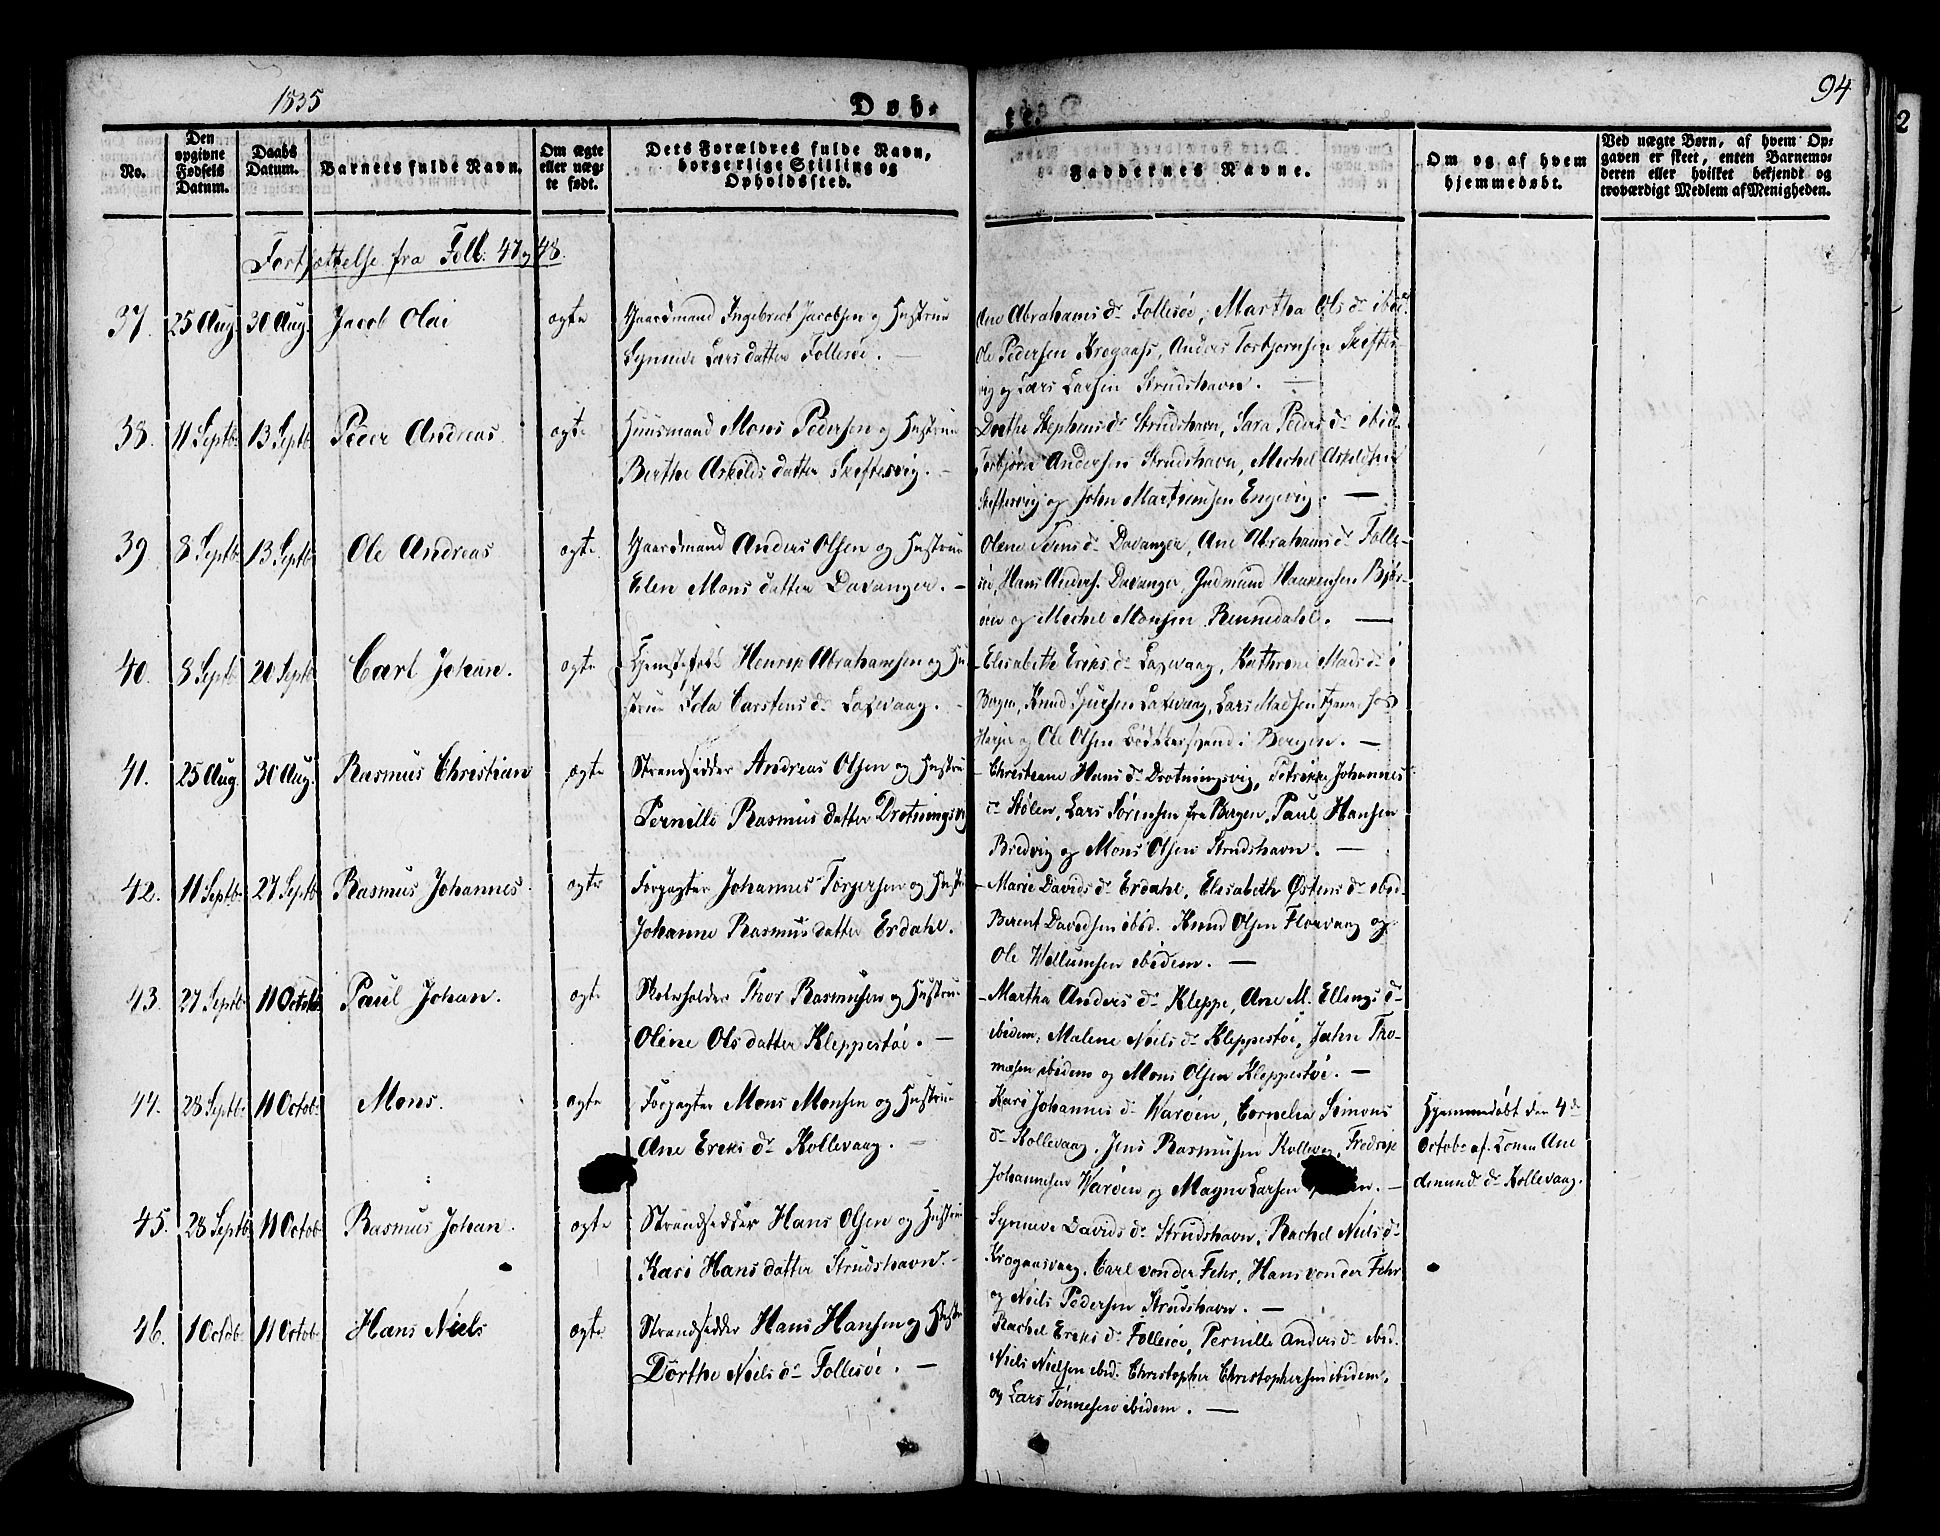 1835
Døb-
te.
94
2
No.
Den opgivne Fødsels Datum.
Daabs Datum.
Barnets fulde Navn.
Om ægte eller uægte født.
Dets Forældres fulde Navn, borgerlige Stilling og Opholdssted.
Faddernes Navne.
Om og af hvem hjemmedøbt.
Ved uægte Børn, af hvem Opgaven er skeet, enten Barnemoderen eller hvilket bekjendt og troværdigt Medlem af Menigheden.
Fortsættelse fra Foll. 47 og 48.
37. 25 Aug. 30 Aug. Jacob Olai ægte Gaardmand Ingebrect Jacobsen og Hustrue
Synneve Larsdatter Follesøe. —
Ane Abrahams dr. Follesøe, Martha Ols dr. ibid.
Ole Pedersen Krogaas, Anders Torbjørnsen Skeftes-
vig og Lars Larsen Strudshavn. —
38. 11 Septb. 13 Septb. Peder Andreas. ægte Huusmand Mons Pedersen og Hustrue
Berthe Askilds datter Skeftesvig. —
Dorthe Stephens dr. Strudshavn, Sara Peders dr. ibid.
Torbjørn Andersen Strudshavn, Michel Askildsen
Skeftesvig og John Martinusen Engevig. —
39 8 Septb. 13 Septb. Ole Andreas ægte. Gaardmand Anders Olsen og Hustrue
Elen Mons datter Davanger. —
Olene Iverns dr. Davanger, Ane Abrahams dr. Folle-
søe, Hans Anders. Davanger, Gudmund Haakensen Bjør-
øen og Michel Monsen Rennedahl. —
40. 8 Septb. 20 Septb. Carl Johan. ægte Tjenestefolk Henrik Abrahamsen og Hu-
strue Ida Carstens dr. Laxevaag. —
Elisabeth Eriks dr. Laxevaag, Kathrine Mads dr. i
Bergen, Knud Sjursen Laxevaag, Lars Madsen tjen. hos
og Ole Olsen Bødkersvend i Bergen. —
41. 25 Aug. 30 Aug. Rasmus Christian ægte Strandsidder Andreas Olsen og Hustrue
Pernille Rasmus datter Drotningsvig
Christiane Hans dr. Drotningsvig, Petrikke Johannes
dr. Stølen, Lars Sørensen fra Bergen, Paul Hansen
Bredvig og Mons Olsen Strudshavn. —
42. 11 Septb. 27 Septb. Rasmus Johannes. ægte Forpagter Johannes Torgersen og Hustr.
Johanne Rasmus datter Erdahl.
Marie Davids dr. Erdahl, Elisabeth Østens dr. ibid.
Berent Davidsen ibid. Knud Olsen Florvaag og
Ole Willumsen ibidem. —
43. 27 Septb. 11 Octob. Paul Johan. ægte Skoleholder Thor Rasmusen og Hustrue
Oline Ols datter Kleppestøe. —
Martha Anders dr. Kleppe, Ane M. Ellings dr.
ibidem, Malene Niels dr. Kleppestøe, John Tho-
mæsen ibidem og Mons Olsen Kleppestøe. —
44. 28 Septb. 11 Octob. Mons. ægte Forpagter Mons Monsen og Hustrue
Ane Eriks dr. Kollevaag. —
Kari Johannes dr. Warøen, Cornelia Simons
dr. Kollevaag, Jens Rasmusen Kollevag, Fredrik
Johannesen Warøen og Magne Larsen
Hjemmedøbt den 4de
Octob. af Konen Ane
dr. Kollevaag.
45. 28 Septb. 11 Octob. Rasmus Johan. ægte Strandsidder Hans Olsen og Hustrue
Kari Hans datter Strudshavn. —
Synneve Davids dr. Strudshavn, Rachel Niels dr.
Krogaasvaag, Carl von der Fehr, Hans von der Fehr
og Niels Pedersen Strudshavn. —
46. 1 Octob. 11 Octob. Hans Niels ægte Strandsidder Hans Hansen og Hustr.
Dorthe Niels dr. Follesøe. —
Rachel Eriks dr. Follesøe, Pernille Anders dr. ibid.
Niels Nielsen ibid. Christopher Christophersen ibidem,
og Lars Tønnesen ibidem. —